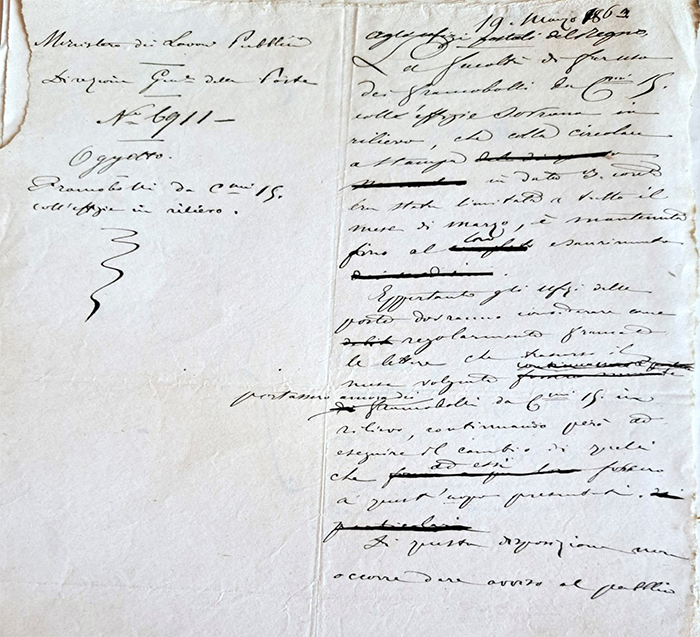 Ministero dei Lavori Pubblici
Direzione Gen.le delle Poste
N.o 6911 —
Oggetto.
Francobolli da C.mi 15.
coll'effigie in rilievo.
19. Marzo 1863
agli uffizi postali del Regno,
La facoltà di far uso
dei francobolli da C.mi 15.
coll'effigie Sovrana in
rilievo, che colla circolare
a stampa
in data 3. corr.te
era stata limitata a tutto il
mese di marzo, è mantenuta
fino al loro esaurimento
.
Eppertanto gli uffizi delle
poste dovranno considerare come
regolarmente francate
le lettere che trascorso il
mese volgente
portassero ancora dei francobolli da C.mi 15. in
rilievo, continuando però ad
eseguire il cambio di quelli
che ad essi fossero
a quest'uopo presentati.
Di questa disposizione non
occorre dare avviso al pubblico